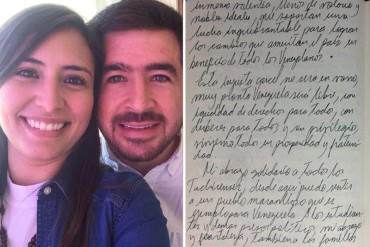 inmenso talento, lleno de valores y
nobles ideales, que soportan una
lucha inquebrantable para lograr
los cambios que ameritan el país en
beneficio de todos los venezolanos.
Esta injusta carcel no sera en vano,
muy pronto Venezuela sera libre, con
igualdad de derechos para todos, con
deberes para todos y sin privilegios,
todos en prosperidad y
Mi abrazo solidario a todos los
Tachirenses, desde aqui puedo sentir
a un pueblo maravilloso que es
ejemplo para Venezuela. A los estudian
tes y demas presos politicos, mi abrazo
y fortaleza, tambien a los familia